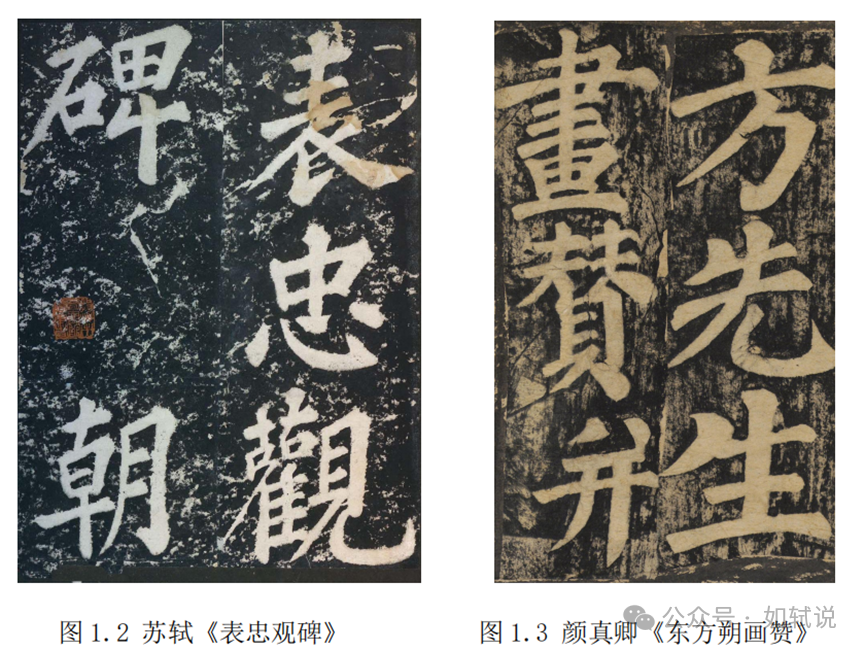 表忠觀
碑朝
方先生
畫賛并
图1.2 苏轼《表忠观碑》
图1.3 颜真卿《东方朔画赞》
公众号 · 如轼说